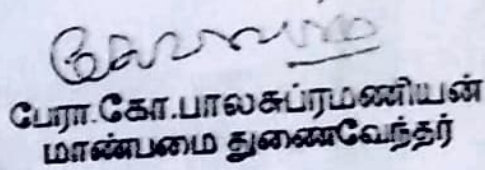 பேரா.கோ.பாலசுப்ரமணியன்
மாண்பமை துணைவேந்தர்